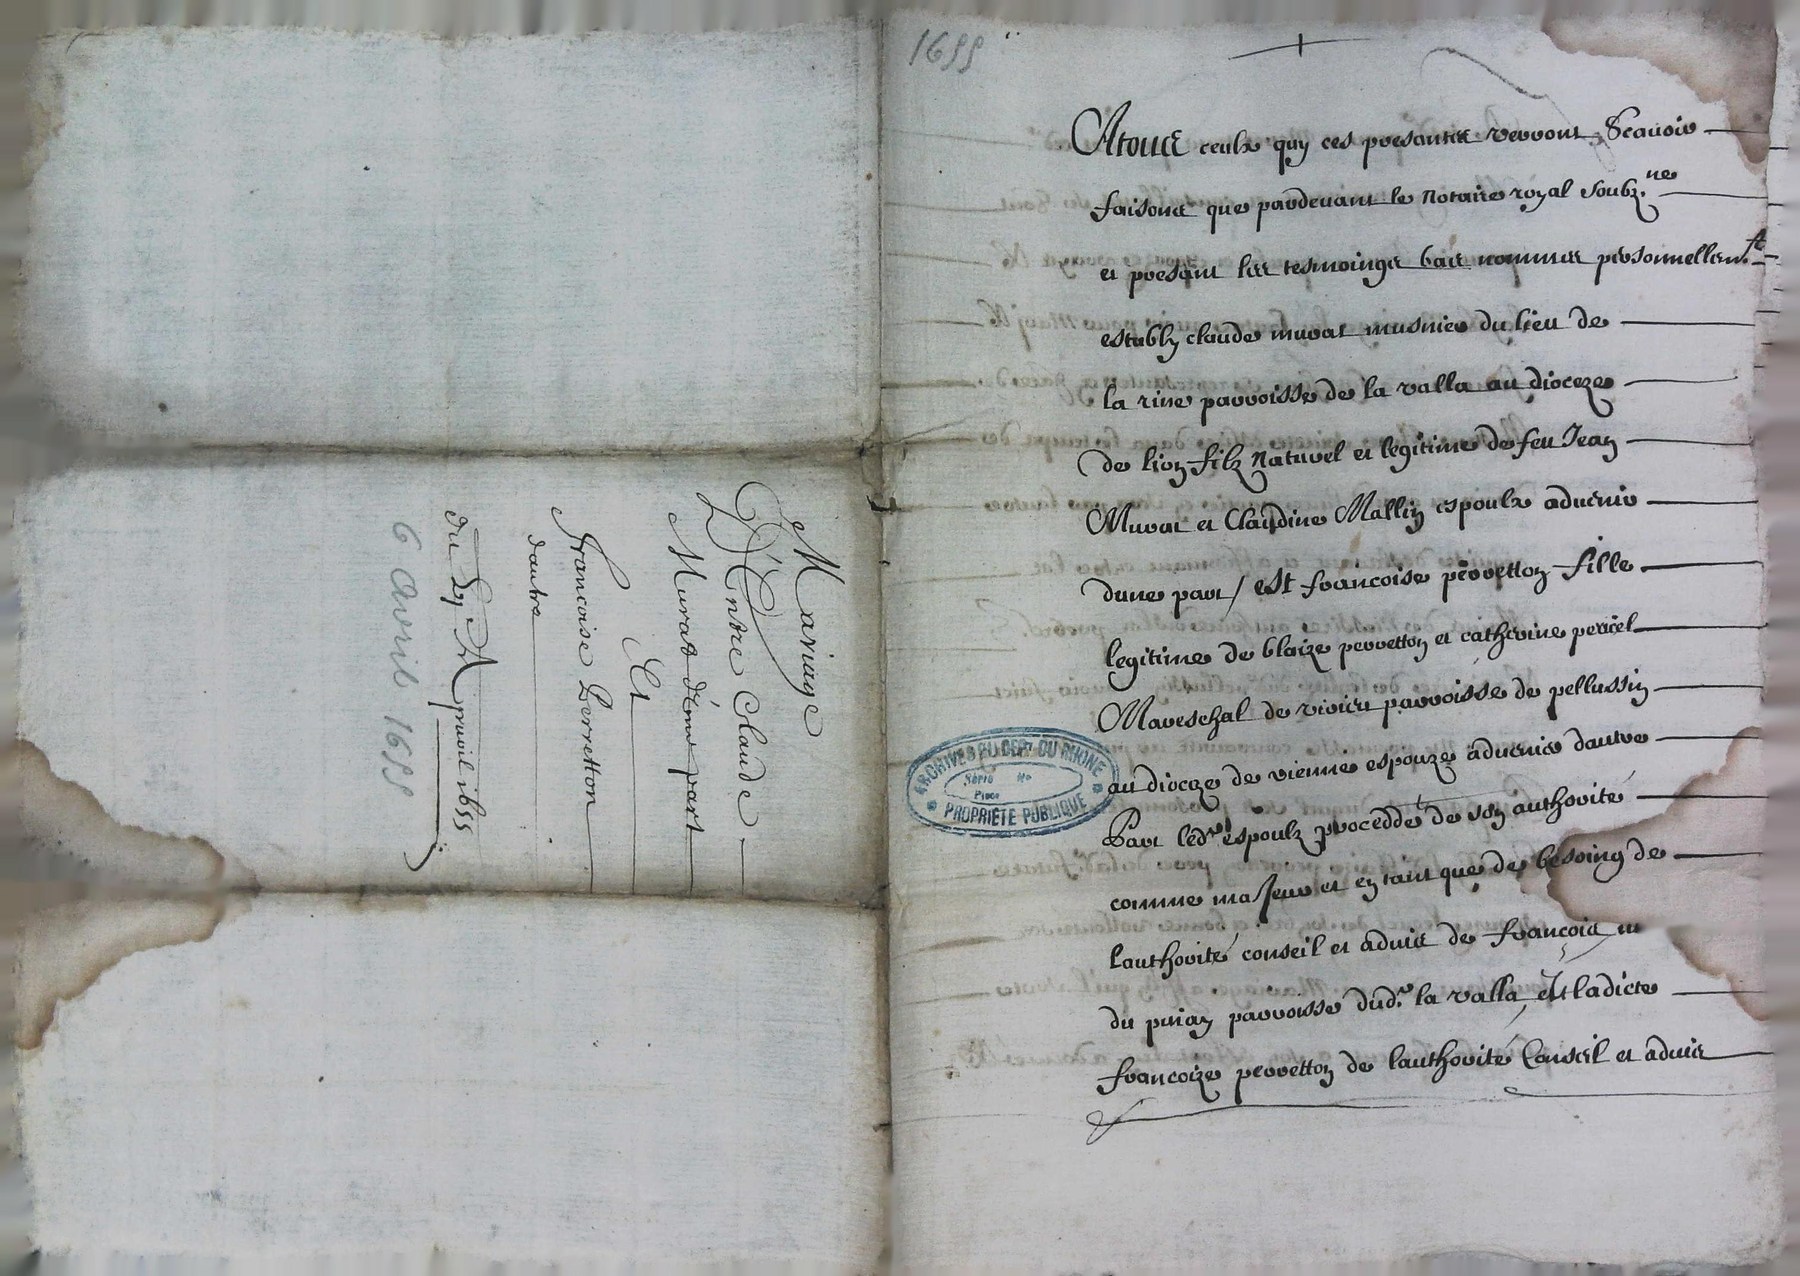 Mariage
Entre Claude
Murat d'une part
Et
Francoise Perretton
dautre
du 6 Apvril 1655
6 avril 1655
1655
Atous ceulx quy ces presantes verront Scauoir
faisons que pardeuant le notaire royal soubz.ne
et presant les tesmoings bas nommes personnellem.t
estably claude murat musnier du lieu de
la rive parroisse de la valla au dioceze
de lion filz naturel et legitime de feu Jean
Murat et Claudine Mallin espoulx aduenir
dune part / est francoise perretton fille
legitime de blaize perretton et catherine pericel
Mareschal de virieu parroisse de pellussin
au dioceze de vienne espouze aduenir dautre
Part led.r espoulx procedde de son authorité
comme maJeur et en tant que de besoing de
lauthorité conseil et aduis de francois
du puian parroisse dud.r la valla, Et ladicte
francoize perretton de lauthorité Conseil et aduis
ARCHIVES DU DEPT DU RHONE
Série No
Pièce
PROPRIÉTÉ PUBLIQUE